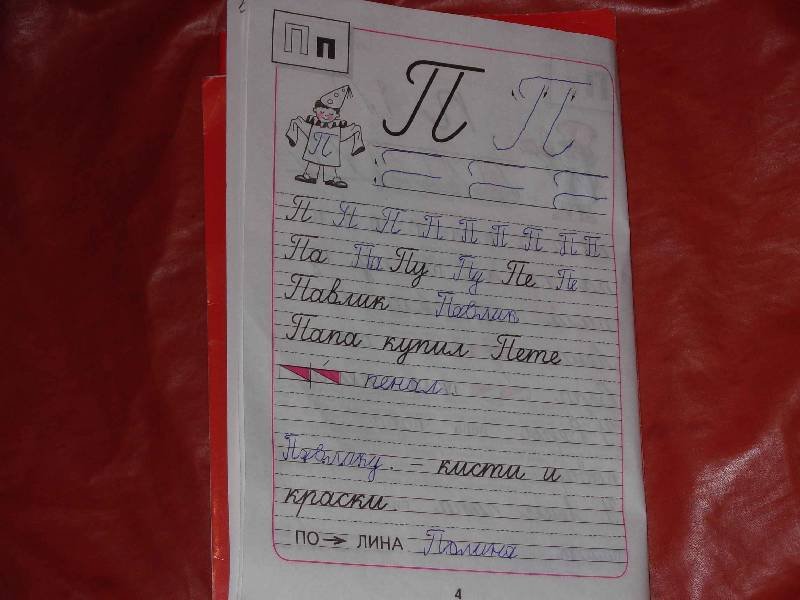 П п
П П
П
П П П П П П П П П
Па Па Пу Пу Пе Пе
Павлик Павлик
Папа купил Пете
пенал.
Павлику. – кисти и
краски
ПО → ЛИНА Полина
4